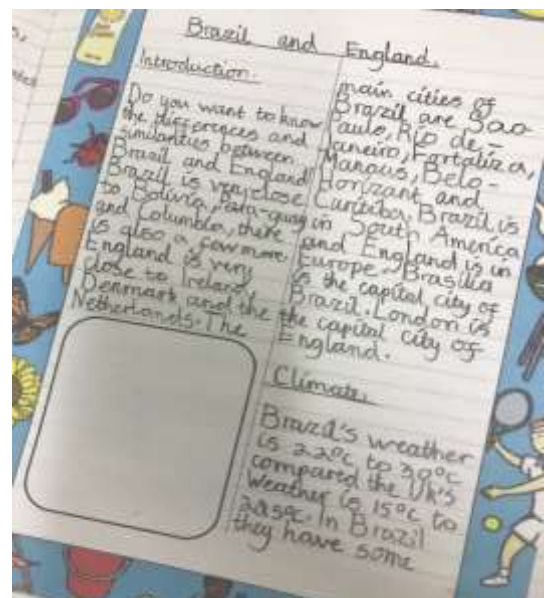 Brazil and England.
Introduction.
Do you want to know
the differences and
similarities between
Brazil and England
Brazil is very close
to Bolivia, Para-guay
and Columbia, there
is also a few more
England is very
close to Ireland,
Denmark and the
Netherlands. The
main cities of
Brazil are Sao-
Paulo, Rio de-
Janeiro, Fortaliza,
Manous, Belo-
Horizant and
Curitiba, Brazil is
in South America
and England is in
Europe. Brasilia
is the capital city of
Brazil. London is
the capital city of
England.
Climate.
Brazil's weather
is 22°c to 30°c
compared the UK's
weather is 15°c to
In Brazil
they have some